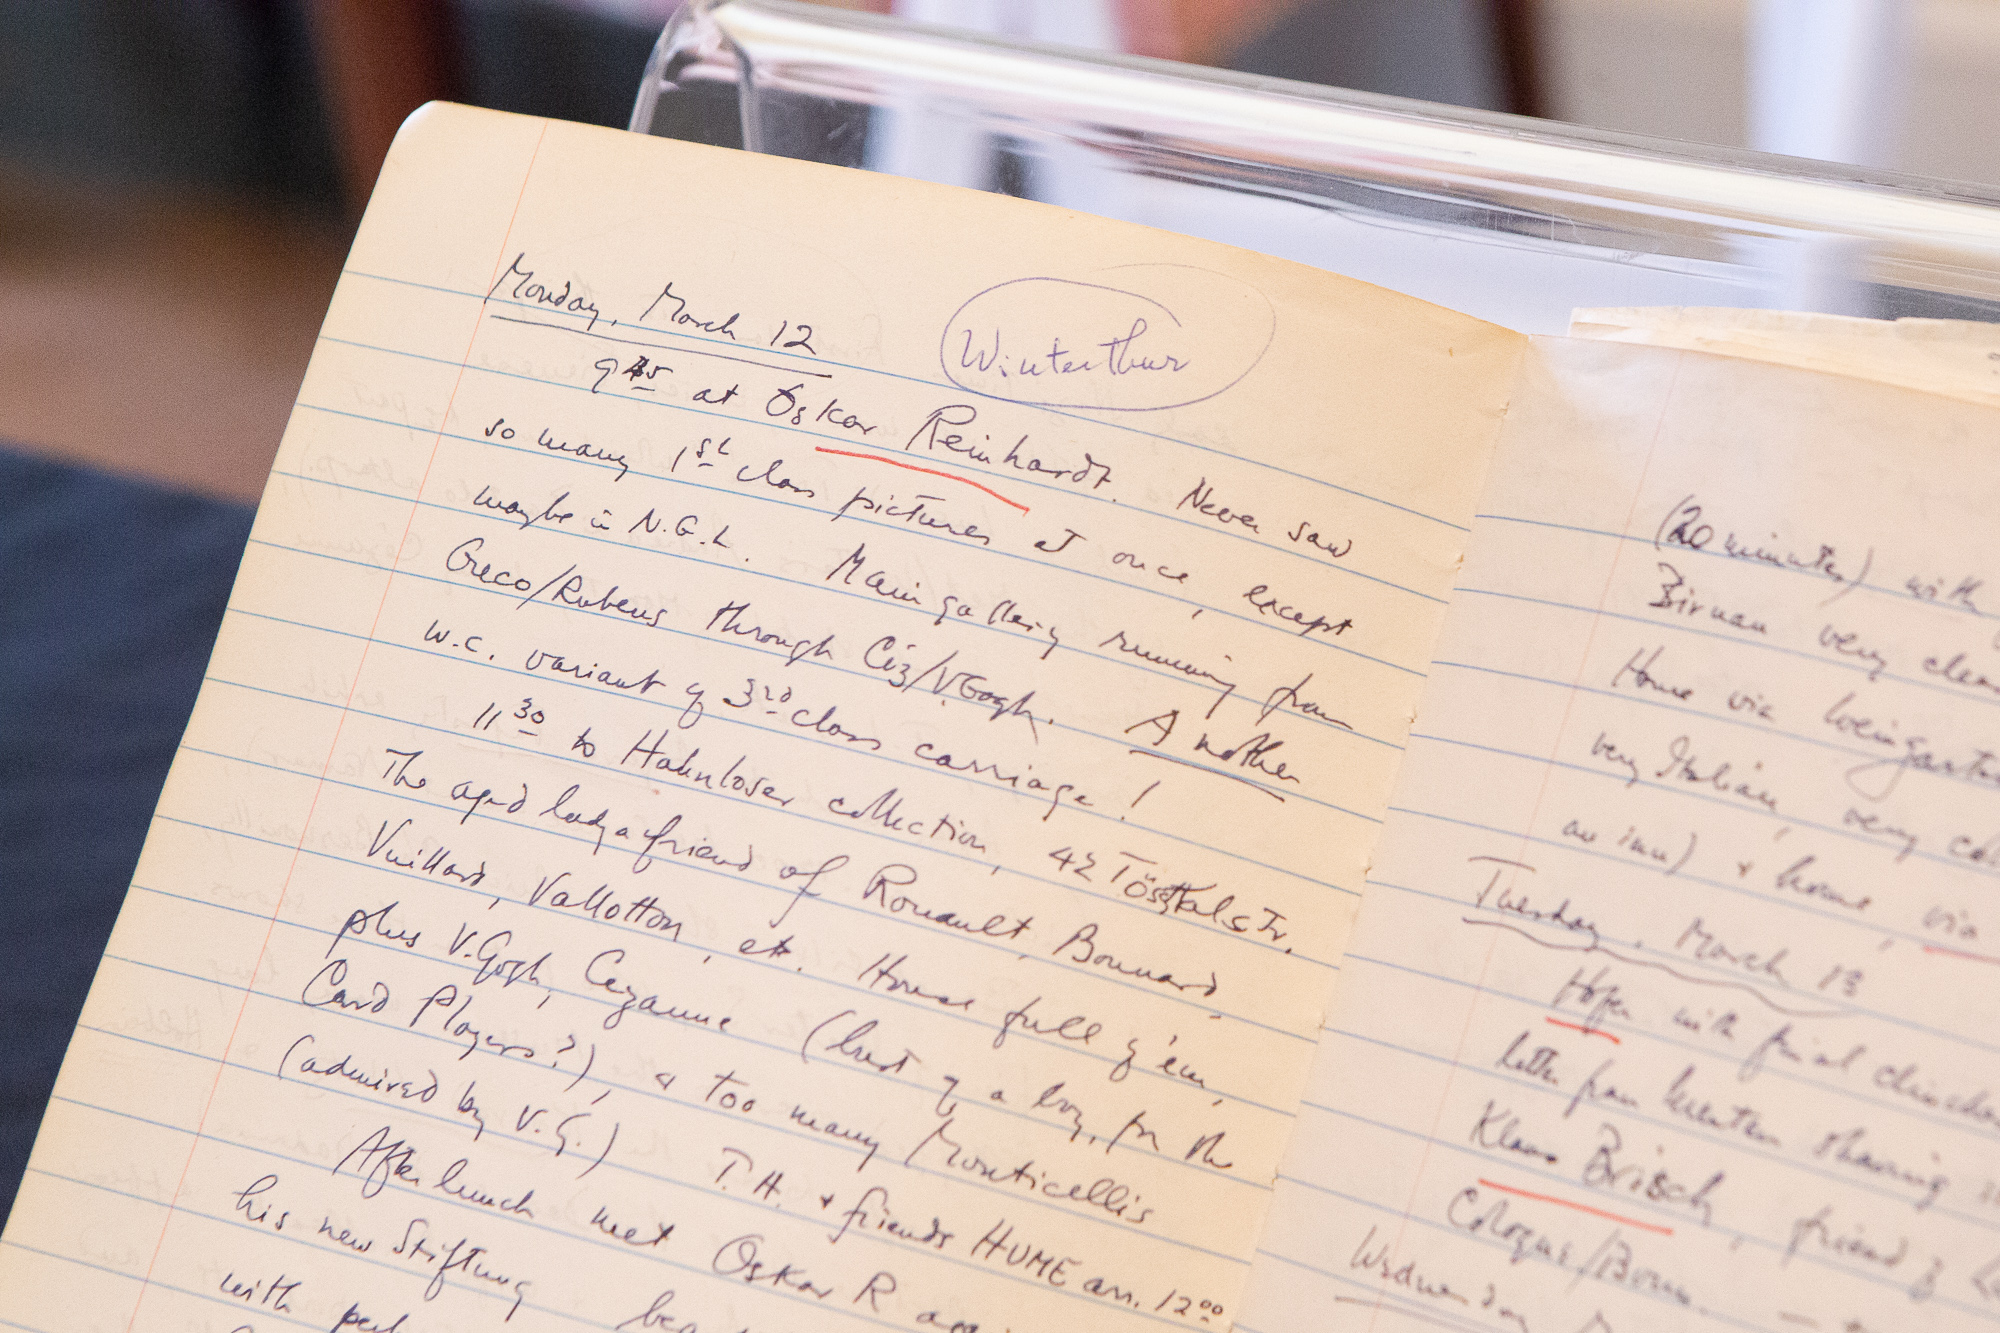 Monday, March 12
Winterthur
9 45 at Oskar Reinhardt. Never saw
so many 1st class pictures at once, except
maybe in N.G.L. Main gallery running from
Greco/Rubens through Céz/V.Gogh. Another
w.c. variant of 3rd class carriage!
11 30 to Hahnloser collection, 42 Tösstalstr.
The aged lady a friend of Rouault, Bonnard,
Vuillard, Vallotton, etc. House full of 'em,
plus V.Gogh, Cezanne (bust of a boy, for the
Card Players?), & too many Monticellis
(admired by V.G.) T.H. & friends HUME arr. 12 00
After lunch met Oskar R
his new Stiftung
with
(20 minutes) with
Birnau very
Home via
very Italian, very
an inn) & home, via
Tuesday, March 13
with final
letter from sharing
Klaus Brisch, friend of
Cologne/Bonn. —
Wednesday